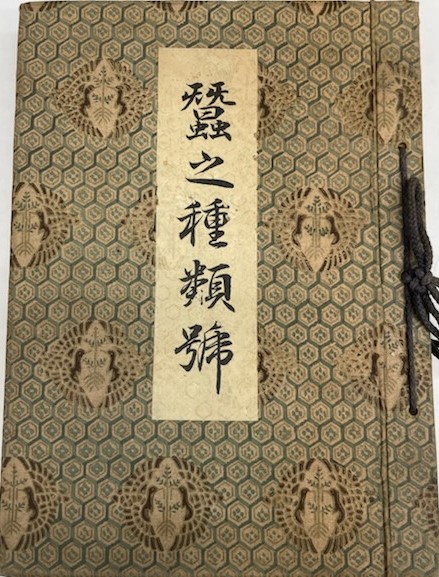 蠶之種類號